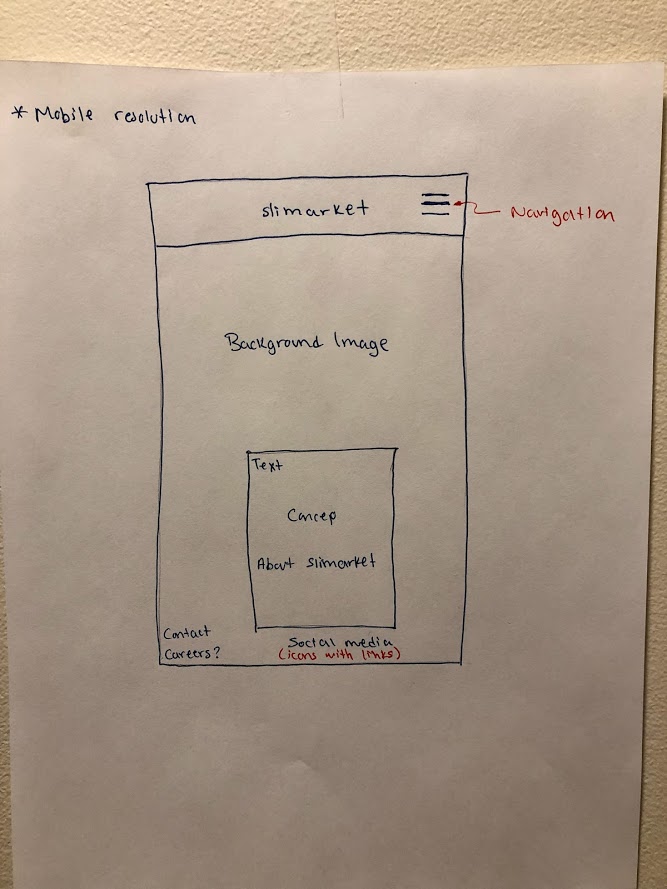 * Mobile resolution
slimarket
Navigation
Background Image
Text
Concep
About slimarket
Contact
Careers?
Social media
(icons with links)